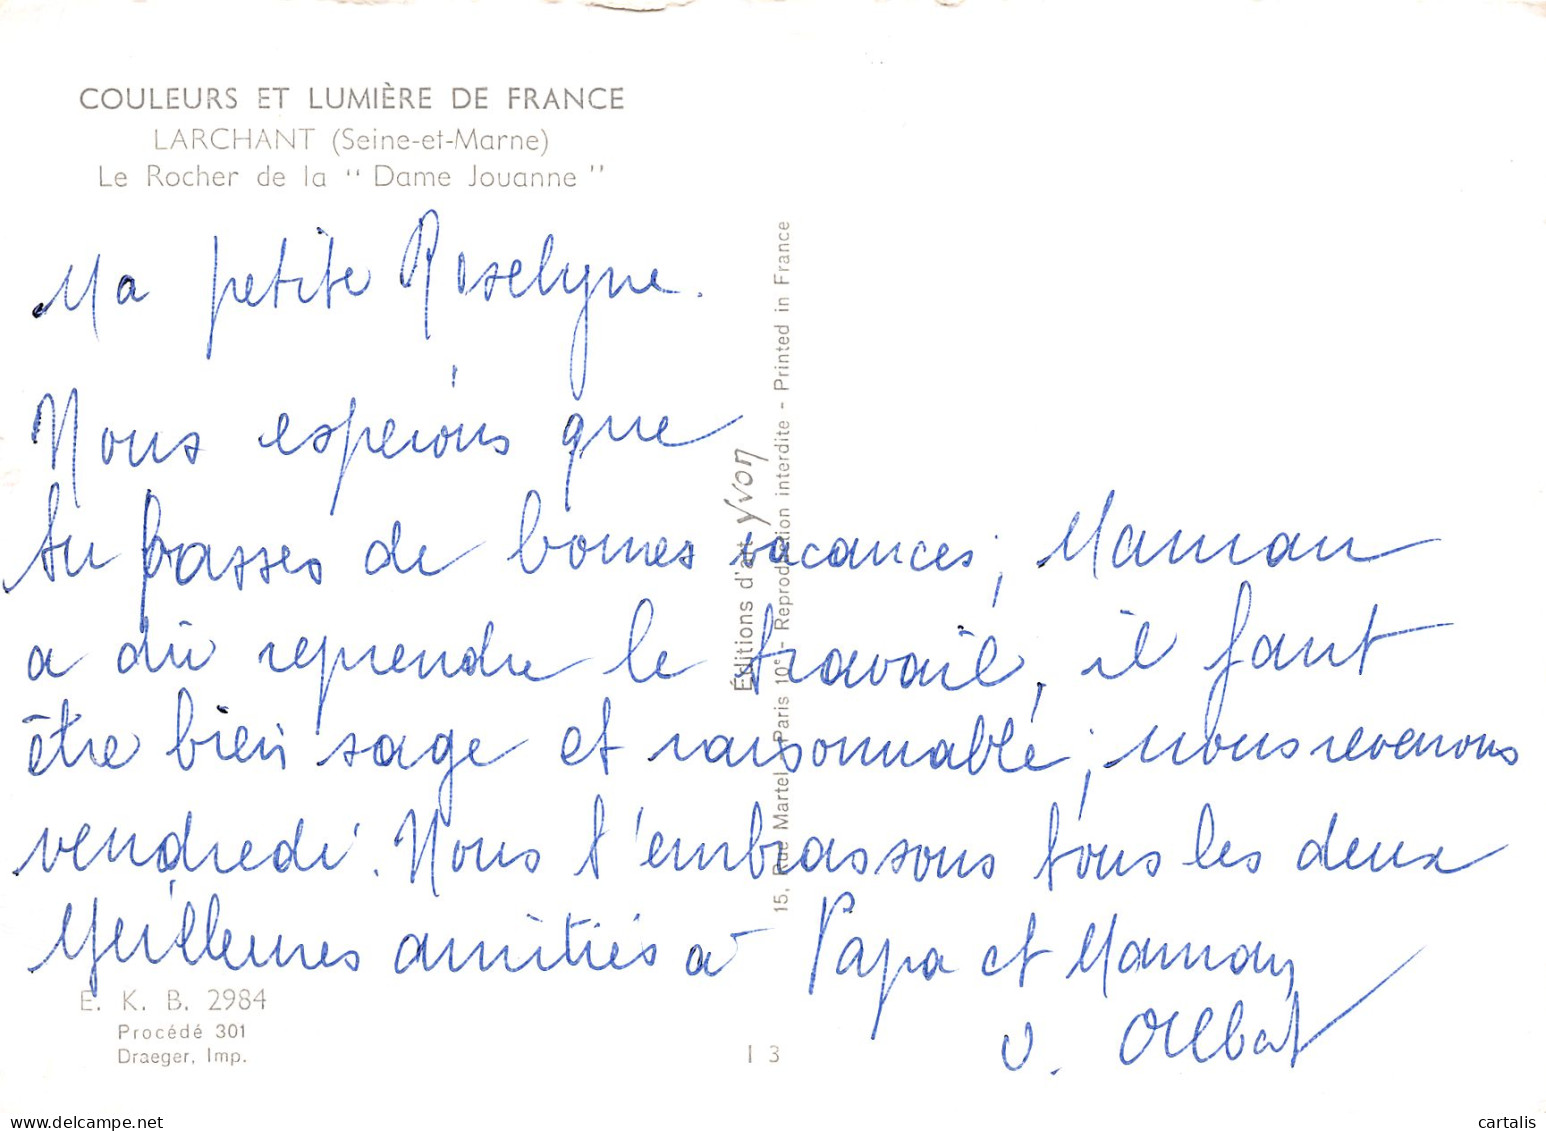 COULEURS ET LUMIÈRE DE FRANCE
LARCHANT (Seine-et-Marne)
Le Rocher de la " Dame Jouanne "
Ma petite Roselyne.
Nous esperons que
tu passes de bonnes vacances, Maman
a dû reprendre le travail, il faut
être bien sage et raisonnable, nous revenons
vendredi. Nous t'embrassons tous les deux
Meilleures amitiés à Papa et Maman
Albert
E. K. B. 2984
Procédé 301
Draeger, Imp.
13
Éditions d'art Yvon
15, Rue Martel - Paris 10e - Reproduction interdite - Printed in France
www.delcampe.net
cartalis